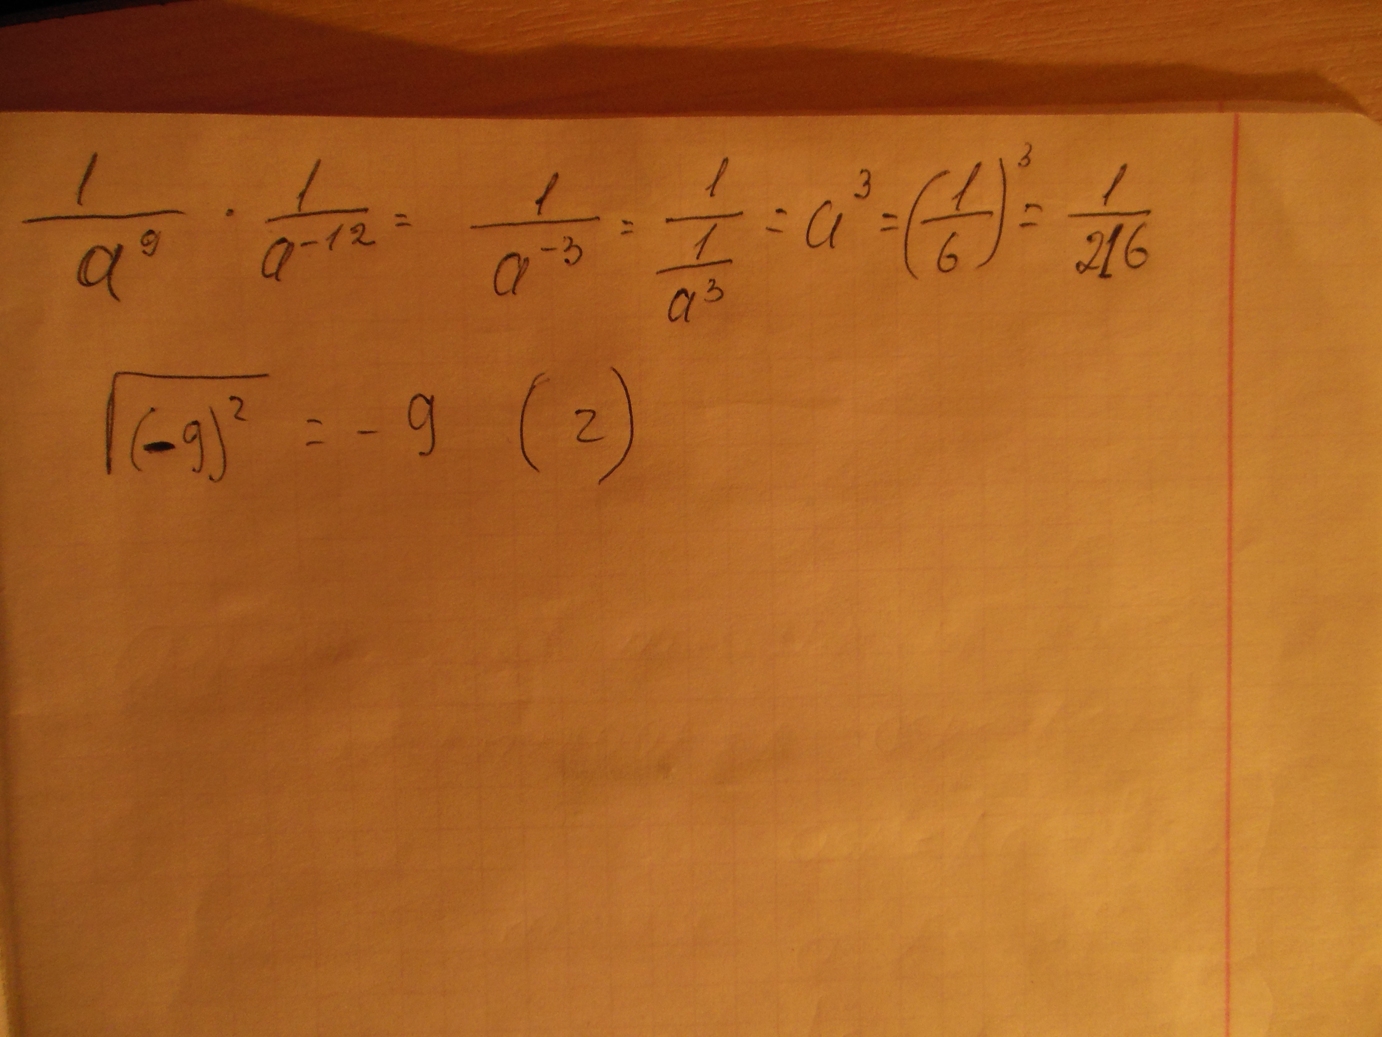 1/a⁹ · 1/a⁻¹² = 1/a⁻³ = 1/(1/a³) = a³ = (1/6)³ = 1/216
√(-9)² = - 9 (2)